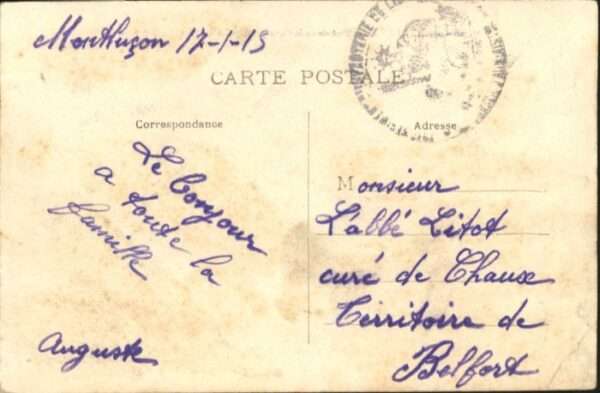 Montluçon 17-1-15
CARTE POSTALE
Correspondance
Adresse
Le bonjour
a toute la
famille
Auguste
Monsieur
L'abbé Litot
curé de Chaux
Territoire de
Belfort